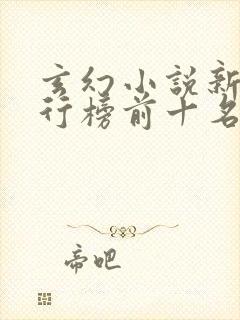 玄幻小说新
行榜前十名
帝吧